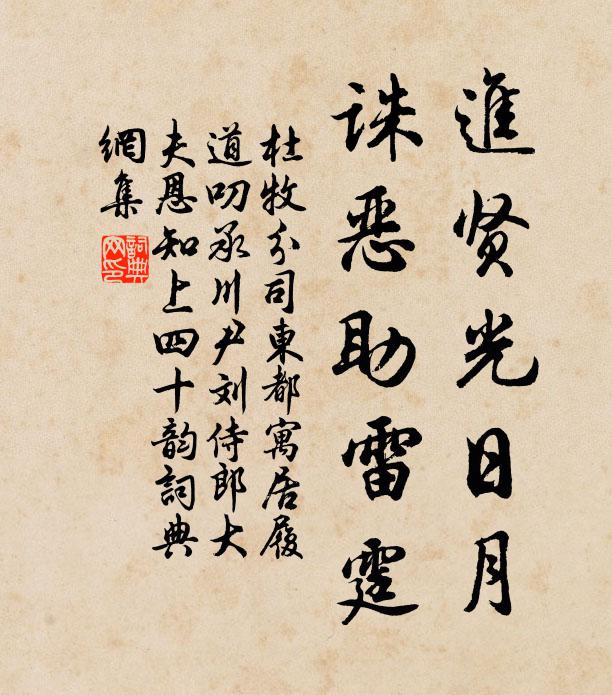 進贤光日月
誅惡助雷霆
杜牧分司東都寓居履
道叨承川尹刘侍郎大
夫恩知上四十韵詞典
網集
詞典网印